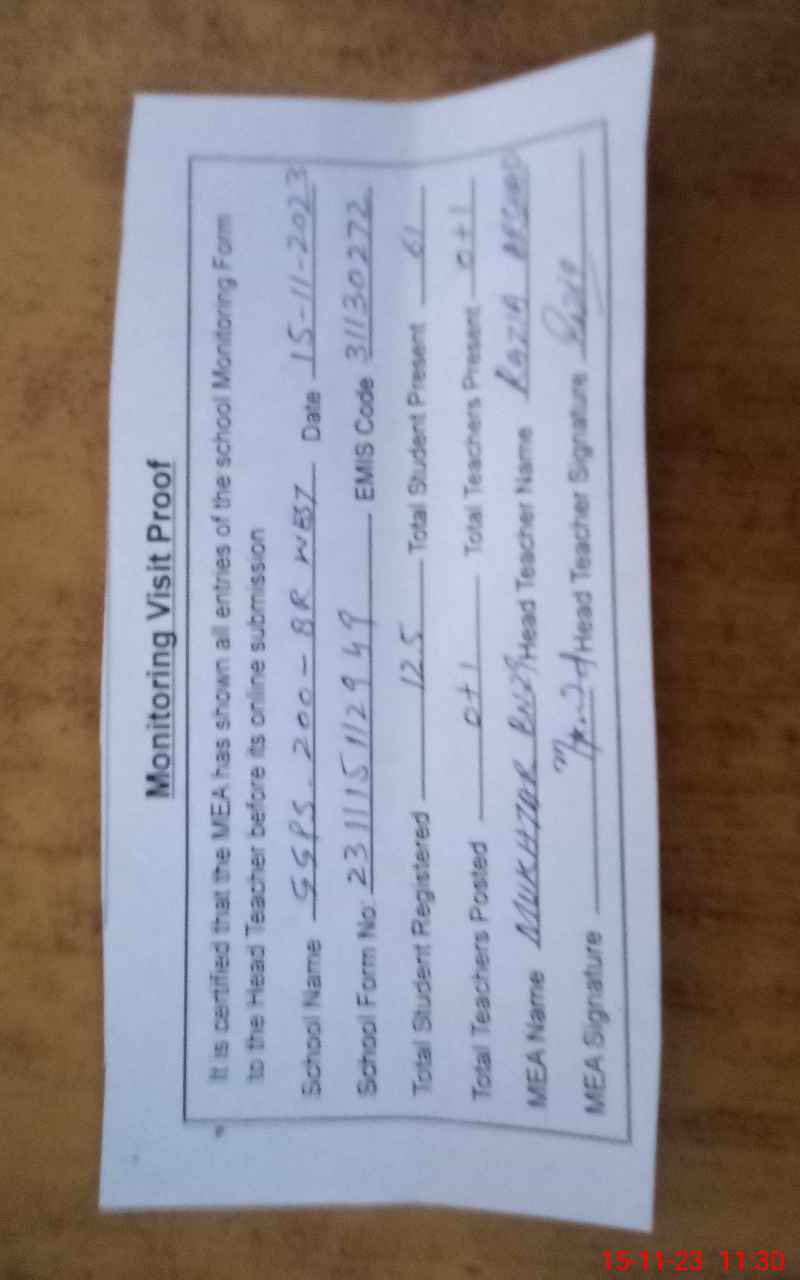 Monitoring Visit Proof
It is certified that the MEA has shown all entries of the school Monitoring Form
to the Head Teacher before its online submission
School Name GGPS. 200-8R WEST Date 15-11-2023
School Form No: 231115112949 EMIS Code 31130272
Total Student Registered 125 Total Student Present 61
Total Teachers Posted 0+1 Total Teachers Present 0+1
MEA Name MUKHTAR Head Teacher Name RAZIA
MEA Signature Head Teacher Signature Razia
15-11-23 11:30